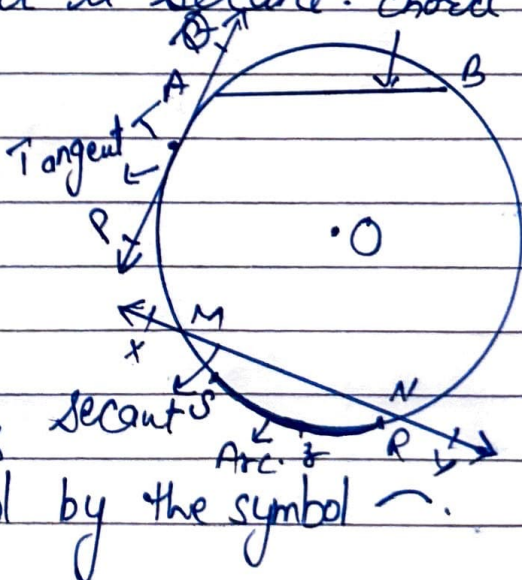 chord
Q
A
B
Tangent
P
O
M
X
N
Secant S
R
Arc. z
y
by the symbol ⌒.